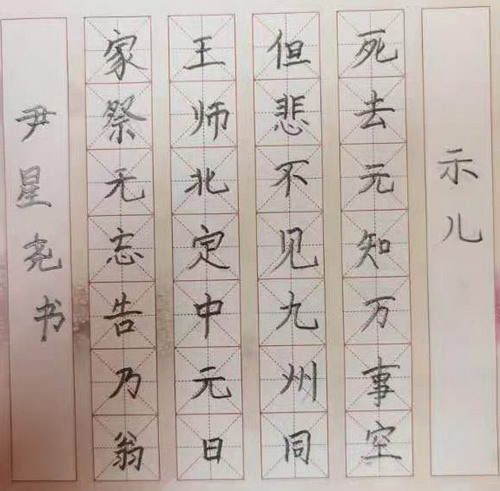 示儿
死去元知万事空
但悲不见九州同
王师北定中元日
家祭无忘告乃翁
尹星尧书